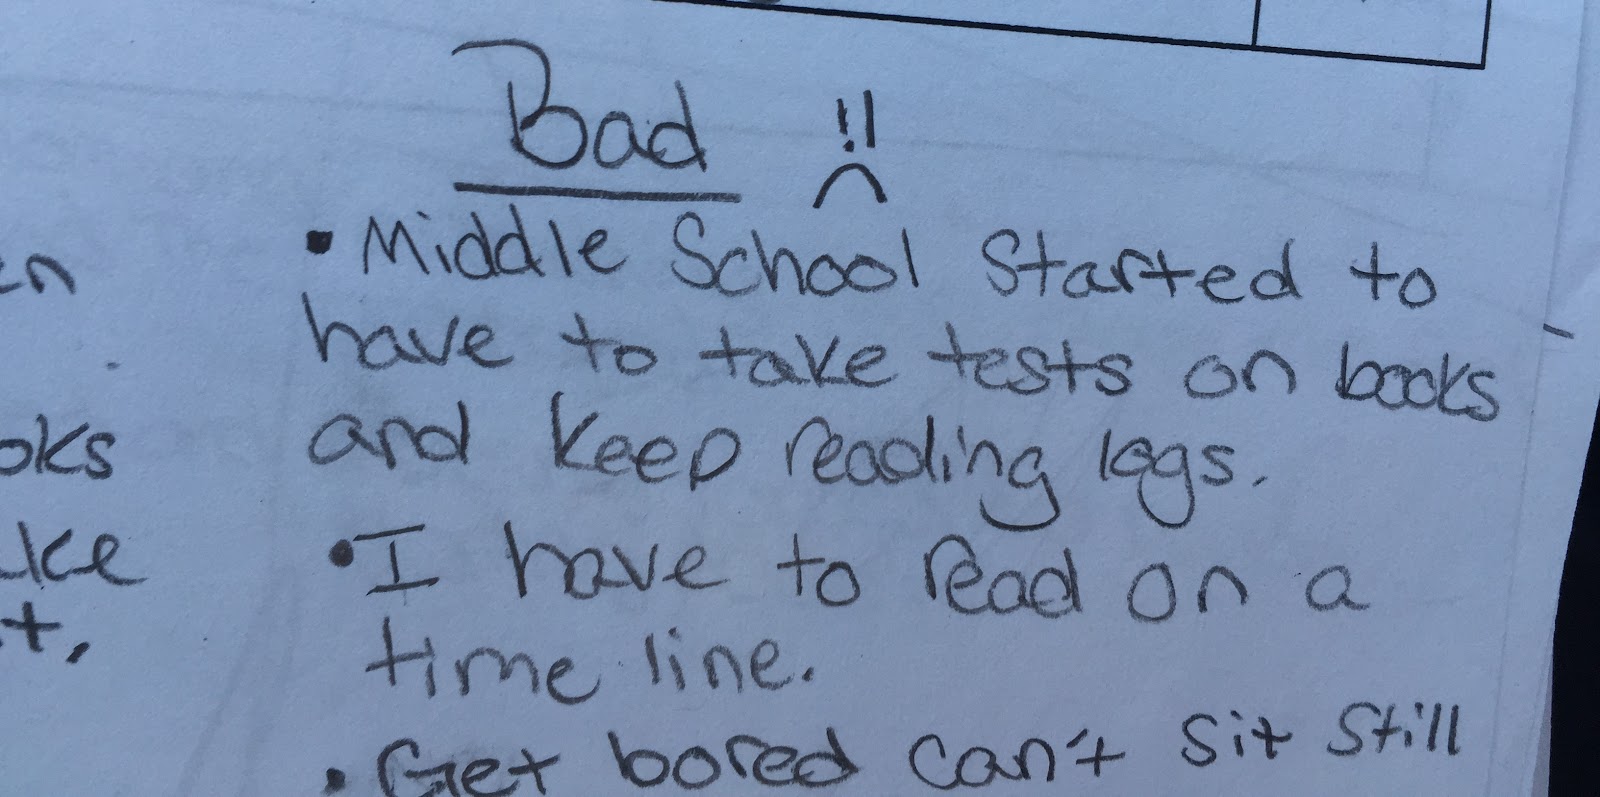 Bad !!
• Middle School Started to
have to take tests on books
and keep reading logs.
• I have to read on a
time line.
• Get bored can't sit still
oks